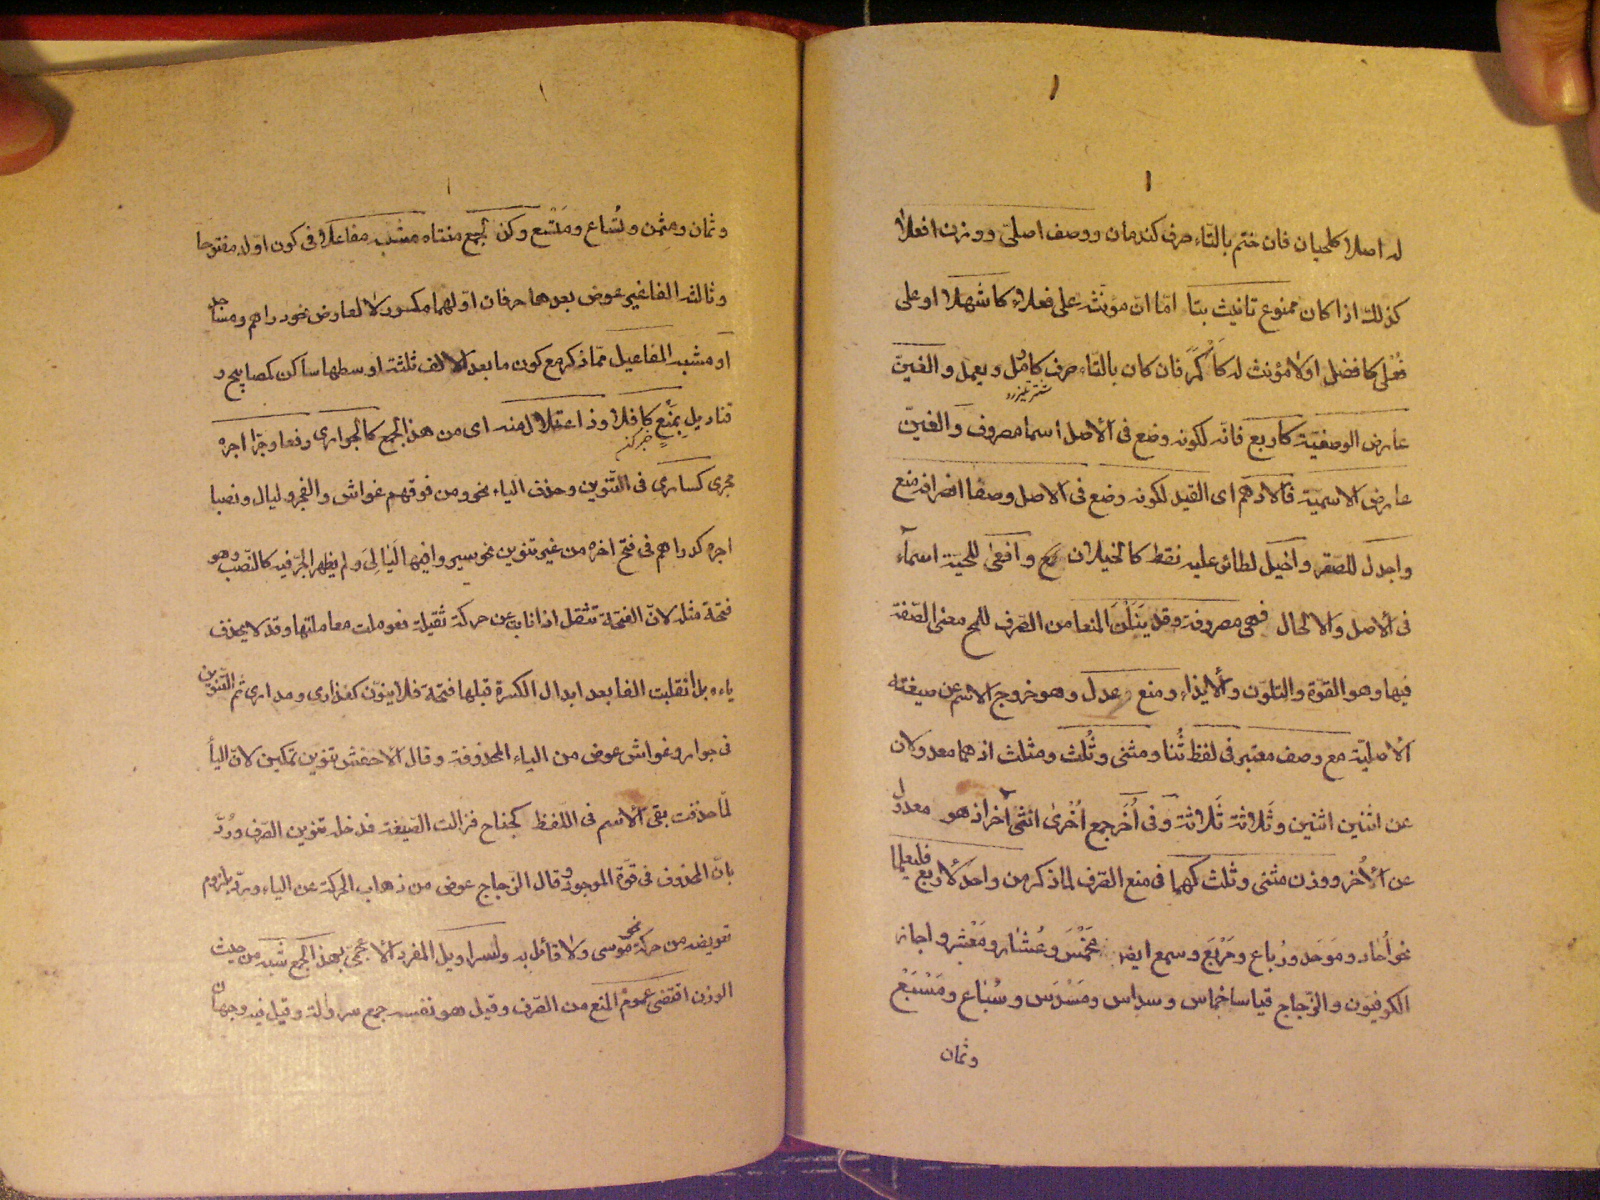 له اصلا كلحيان فان ختم بالتاء صرف كندمان ووصف اصلىّ ووزن افعلا
كذلك اذا كان ممنوع تانيث بتا امّا انّ مؤنثه على فعلاء كاشهلا او على
فُعْلى كافضل اولا مؤنث له كاكمر فان كان بالتاء صرف كارمل ويعمل والغينّ
عارض الوصفيّة كاربع فانّه لكونه وضع فى الاصل اسما مصروف والغينّ
عارض الاسمية فالادهم اى القيد لكونه وضع فى الاصل وصفا انصرافه منع
واجدل للصقر واخيل لطائر عليه نقط كالخيلان وافعى للحيّة اسماء
فى الاصل والالحال فهى مصروفة وقد يَنَلْنَ المنعا من الصّرف للمح معنى الصّفة
فيها وهو القوّة والتلوّن والايذاء ومنع عدل وهو خروج الاسم عن صيغته
الاصليّة مع وصف معتبر فى لفظ ثُنا ومثنى وثُلث ومثلث اذ هما معدولان
عن اثنين اثنين وثَلاثة ثَلاثة وفى اُخَر جمع اُخْرى انثى آخر اذ هو معدول
عن الاُخر ووزن مثنى وثلث كهما فى منع الصّرف لما ذكر من واحد لاربع فليعلما
نحو اُحاد ومَوحَد ورُباع ومَرْبَع وسمع ايضا مَخْمَس وعُشار ومَعْشر واجاز
الكوفيون والزّجاج قياسا خماس وسداس ومَسْدَس وسُباع ومَسْبَعْ
وثمان
وثمان ومثمن وتُسَاع ومَتْسع وكن لجمع منتاه مشبه مفاعلا فى كون اوّله مفتوحا
وثالثه الفا غير عوض بعدها حرفان اوّلهما مكسور لا لعارض نحو دراهم ومساجد
او مشبه المفاعيل ممّا ذكر مع كون ما بعد الالف ثلثة اوسطها ساكن كمصابيح و
قناديل بمنع كافلا وذا اعتلال منه اى من هذا الجمع كالجوارى رفعا وجرّا اجره
مجرى كسارى فى التّنوين وحذف الياء نحو ومن فوقهم غواش والفجر وليال ونصبا
اجره كدراهم فى فتح اخره من غير تنوين نحو سيروا فيها لَيالِىَ ولم يظهر الجرّ فيه كالنّصب وهو
فتحة مثله لانّ الفتحة تثقل اذا نابت عن حركة ثقيلة فعوملت معاملتها وقد لا يحذف
ياءه بل انقلبت الفا بعد ابدال الكسرة قبلها فتحة فلا ينوّن كعذارى ومدارى ثم التّنوين
فى جوار وغواش عوض من الياء المحذوفة وقال الاخفش تنوين تمكين لانّ اليأ
لمّا حذفت بقى الاسم فى اللفظ كجناح فزالت الصّيغة فدخله تنوين الصّرف ورُدّ
بانّ المحذوف فى قوّة الموجود وقال الزّجاج عوض من ذهاب الحركة عن الياء وردّ بلزوم
تعويضه من حركة نحو موسى ولا قائل به ولسراويل المفرد الاعجمى بهذا الجمع شبه من حيث
الوزن اقتضى عموم المنع من الصّرف وقيل هو نفسه جمع سروالة وقيل فيه وجهان